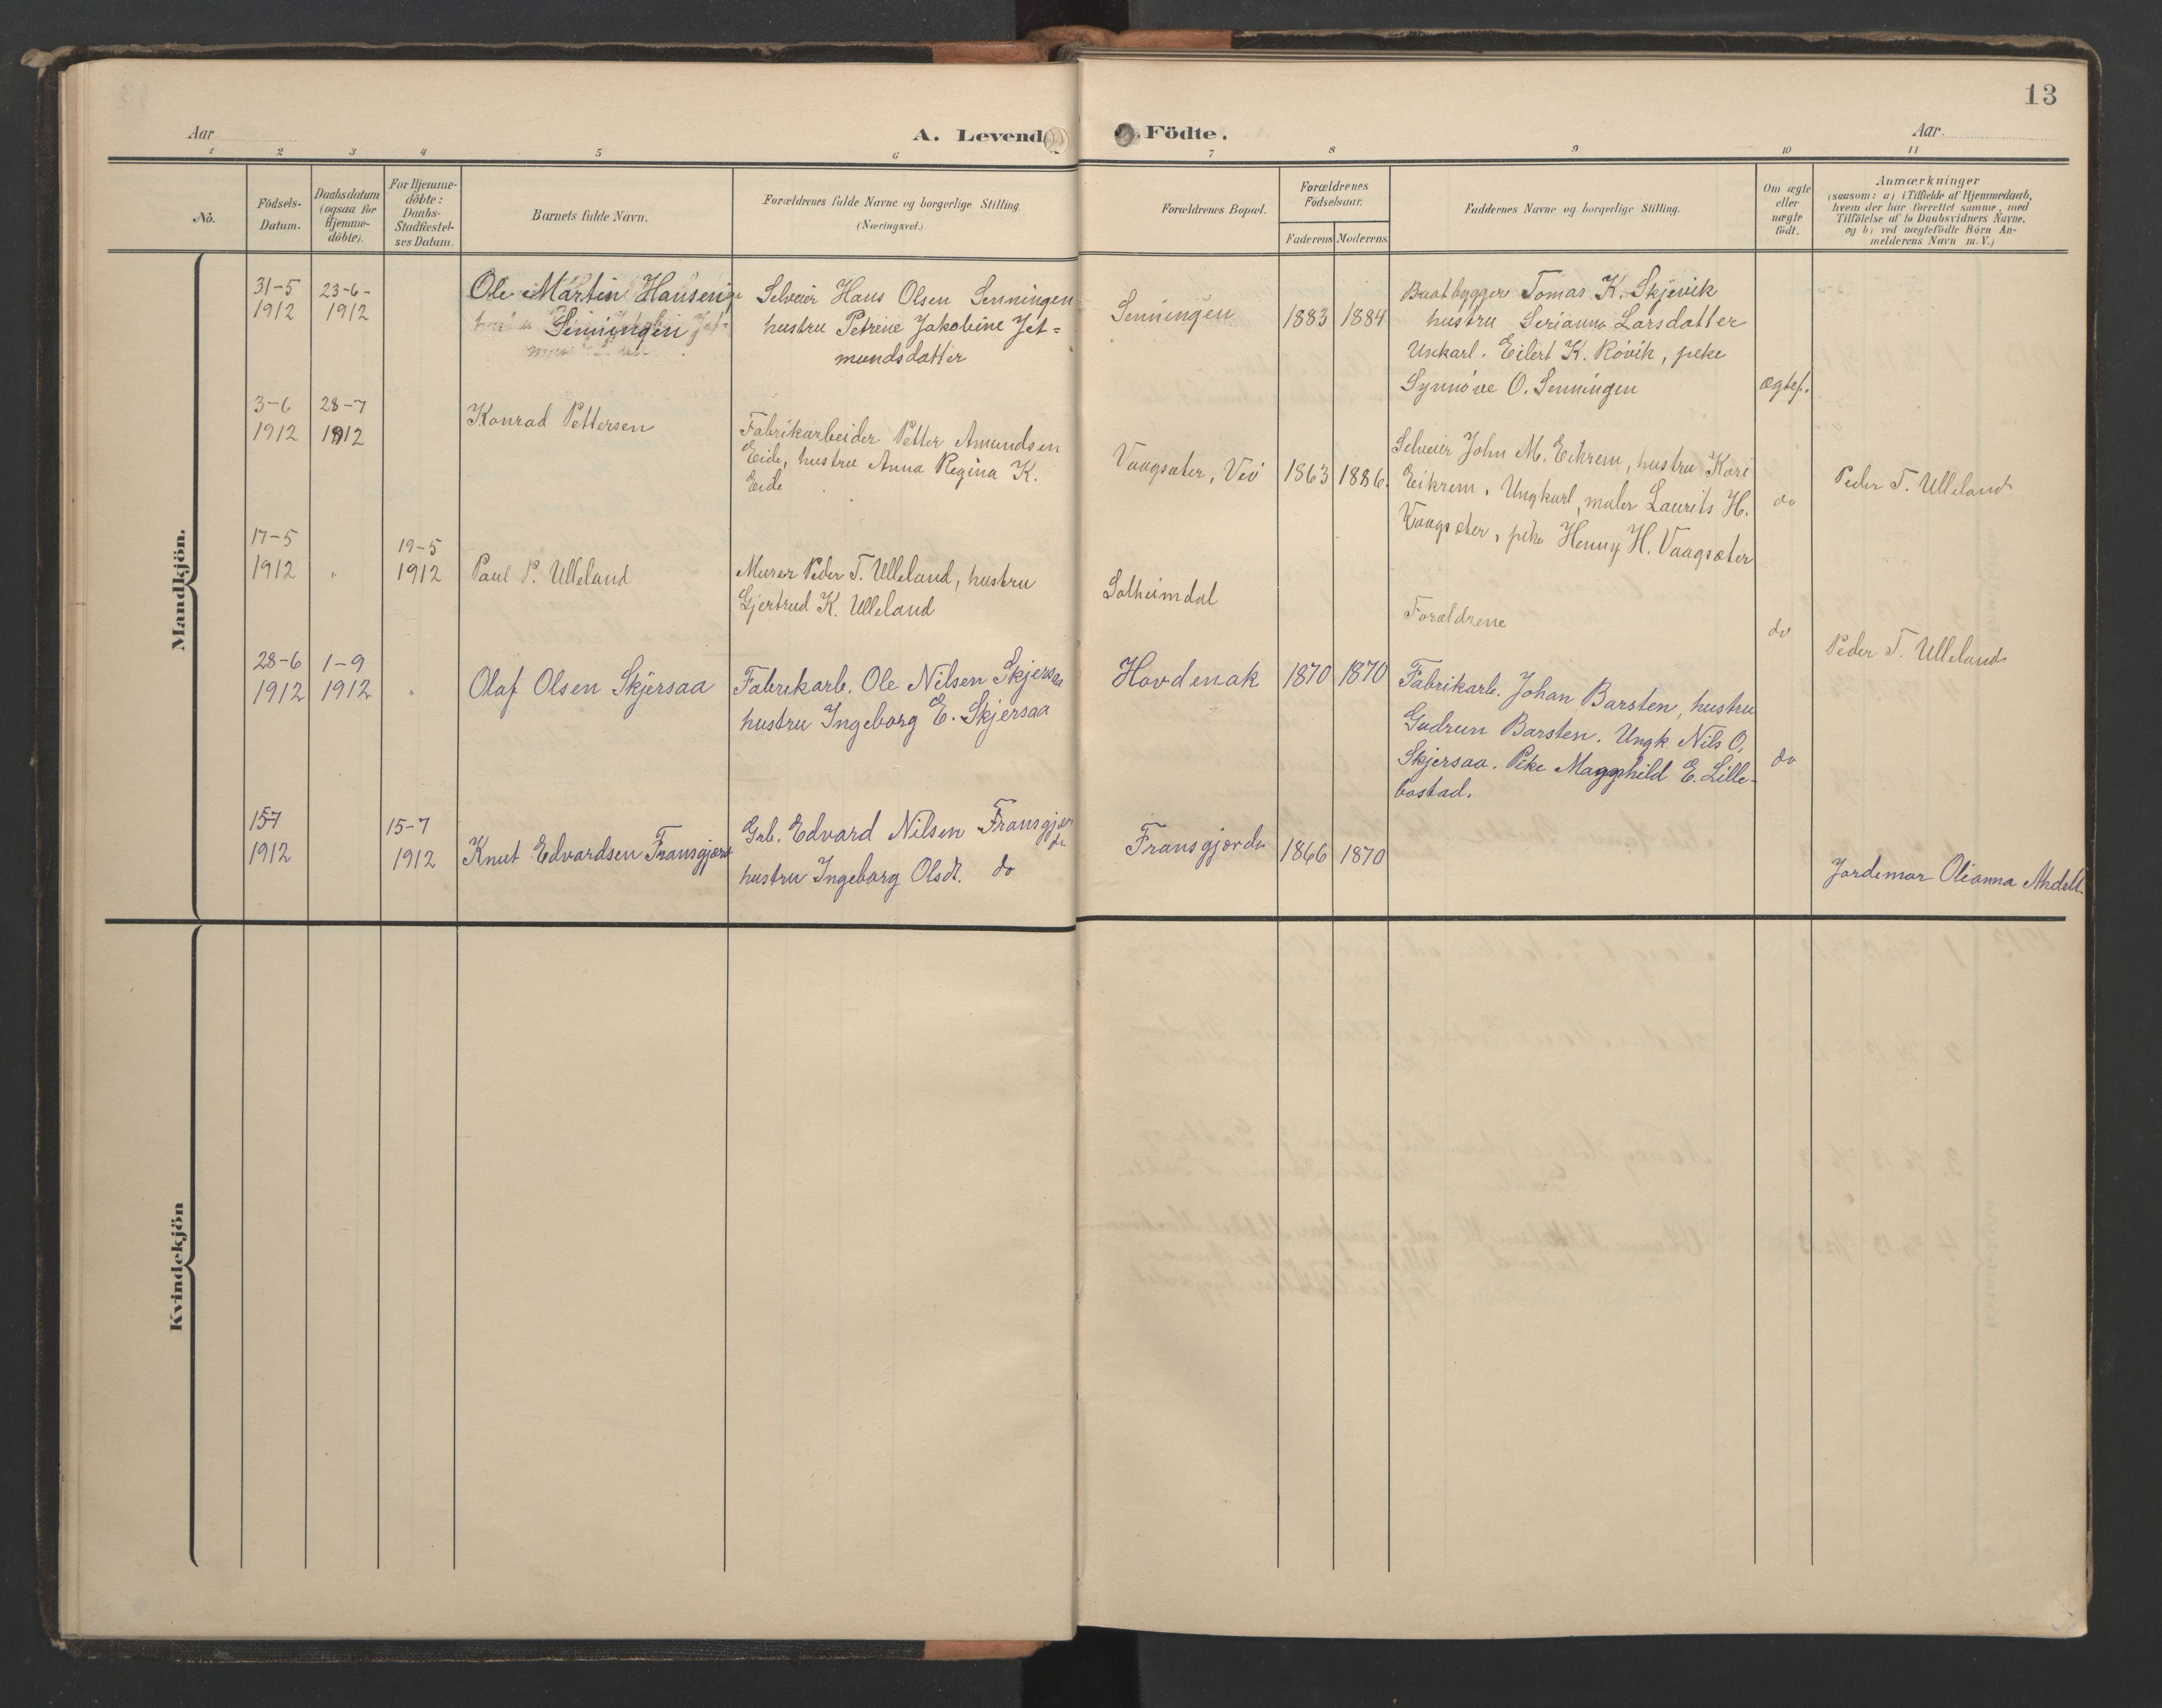 13
Aar
A. Levende Födte.
Aar.
1 2 3 4 5 6 7 8 9 10 11
No.
Födsels-
Datum.
Daabsdatum
(ogsaa for
Hjemme-
döbte).
For Hjemme-
döbte:
Daabs-
Stadfæstel-
ses Datum.
Barnets fulde Navn.
Forældrenes fulde Navne og borgerlige Stilling
(Næringsvei.)
Forældrenes Bopæl.
Forældrenes
Födselsaar.
Faderens Moderens
Faddernes Navne og borgerlige Stilling.
Om ægte
eller
uægte
födt.
Anmærkninger
(saasom: a) i Tilfælde af Hjemmedaab,
hvem der har forrettet samme, med
Tilföielse af to Daabsvidners Navne,
og b) ved uægtefödte Börn An-
melderens Navn m. V.)
Mandkjön.
31-5
1912
23-6-
1912
Ole Martin Hansen
Senningen
Selveier Hans Olsen Senningen
hustru Petrine Jakobine Jet=
mundsdatter
Senningen
1883 1884
Baatbygger Tomas K. Skjevik
hustru Serianna Larsdatter
Unkarl. Eilert K. Rövik, peke
Synnöve O. Senningen
ægtef.
3-6
1912
28-7
1912
Konrad Pettersen
Fabrikarbeider Petter Amundsen
Eide, hustru Anna Regina K.
Eide
Vaagsæter, Veö
1863 1886.
Selveier John M. Eikrem, hustru Kari
Eikrem. Ungkarl, maler Laurits H.
Vaagsæter, pike Henny H. Vaagsæter
do
Peder T. Ulleland
17-5
1912
"
19-5
1912
Paul P. Ulleland
Murer Peder T. Ulleland, hustru
Gjertrud K. Ulleland
Solheimdal
Forældrene
do
Peder T. Ulleland
28-6
1912
1-9
1912
"
Olaf Olsen Skjersaa
Fabrikarb. Ole Nilsen Skjersaa
hustru Ingeborg E. Skjersaa
Hovdenak
1870 1870
Fabrikarb. Johan Barsten, hustru
Gudrun Barsten. Ungk. Nils O.
Skjersaa. Pike Magnhild E. Lille-
bostad.
do
15-7
1912
15-7
1912
Knut Edvardsen Fransgjørde
Grb. Edvard Nilsen Fransgjør
de
hustru Ingeborg Olsdt. do
Fransgjørde
1866 1870
Jordemor Olianna
Kvindekjön